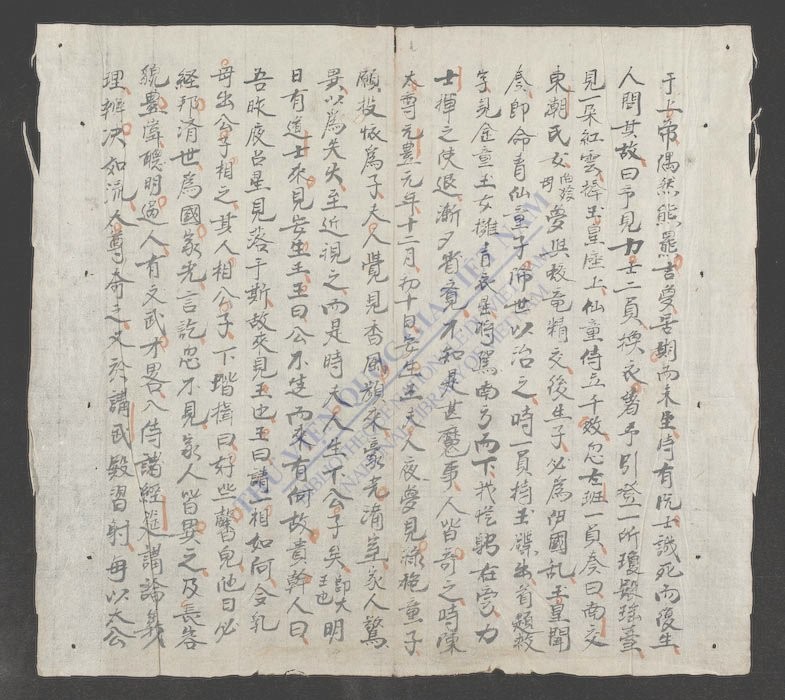 于上帝偶然熊羆吉夢居期而未生侍有阮士誠死而復生
人問其故曰予見力士二員換衣著予引登一所瓊殿瑤臺
見一朵紅雲捧玉皇座上仙童侍立千数忽左班一員奏曰南交
東朝民女夢與蛟竜精交後生子必為阴國乱玉皇聞
奏即命青仙童子降世以治之時一員持玉牒出首題敕
字見金童玉女擁青衣童將駕南方而下我從觀在旁力
士揮之使退漸夕省竟不知是甚魔事人皆奇之時陳
太尊元豊元年十二月初十日安生王夫人夜夢見綠袍童子
願投懐為子夫人覺見香風頻來豪光滿室家人驚
異以為失火至近視之而是時夫人生下公子矣即大王也明
日有道士來見安生王王曰公不速而來有何故貴幹人曰
吾昨夜占星見落于斯故來見王也王曰請一相如何令乳
母出公子相之其人相公子下堦揖曰好些馨兒他日必
経邦済世為國家光言訖忽不見家人皆異之及長容
貌豊偉聰明過人有文武才畧入侍諸經筵講論義
理辨决如流人尊奇之又於講武殿習射每以太公
THƯ VIỆN QUỐC GIA VIỆT NAM
NATIONAL LIBRARY OF VIETNAM